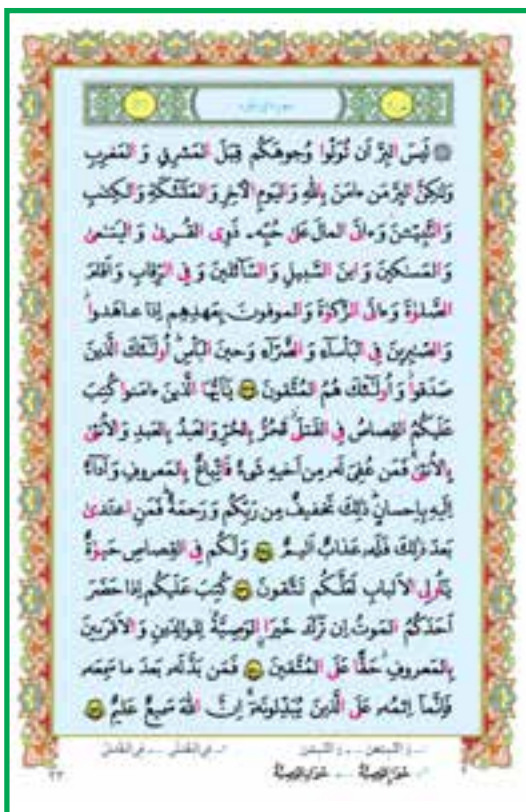 لَيسَ البِرَّ أَن تُوَلّوا وُجوهَكُم قِبَلَ المَشرِقِ وَ المَغرِبِ
وَلٰكِنَّ البِرَّ مَن ءامَنَ بِاللّٰهِ وَ اليَومِ الآخِرِ وَ المَلٰئِكَةِ وَ الكِتٰبِ
وَ النَّبِيّينَ وَ ءاتَى المالَ عَلىٰ حُبِّهِ ذَوِى القُربىٰ وَ اليَتٰمىٰ
وَ المَسٰكينَ وَ ابنَ السَّبيلِ وَ السّائِلينَ وَ فِى الرِّقابِ وَ أَقامَ
الصَّلوٰةَ وَ ءاتَى الزَّكوٰةَ وَ الموفونَ بِعَهدِهِم إِذا عاهَدوا
وَ الصّٰبِرينَ فِى البَأساءِ وَ الضَّرّاءِ وَ حينَ البَأسِ أُولٰئِكَ الَّذينَ
صَدَقوا وَ أُولٰئِكَ هُمُ المُتَّقونَ يٰأَيُّهَا الَّذينَ ءامَنوا كُتِبَ
عَلَيكُمُ القِصاصُ فِى القَتلَى الحُرُّ بِالحُرِّ وَ العَبدُ بِالعَبدِ وَ الأُنثىٰ
بِالأُنثىٰ فَمَن عُفِىَ لَهُ مِن أَخيهِ شَىءٌ فَاتِّباعٌ بِالمَعروفِ وَ أَداءٌ
إِلَيهِ بِإِحسانٍ ذٰلِكَ تَخفيفٌ مِن رَبِّكُم وَ رَحمَةٌ فَمَنِ اعتَدىٰ
بَعدَ ذٰلِكَ فَلَهُ عَذابٌ أَليمٌ وَ لَكُم فِى القِصاصِ حَيوٰةٌ
يٰأُولِى الأَلبابِ لَعَلَّكُم تَتَّقونَ كُتِبَ عَلَيكُم إِذا حَضَرَ
أَحَدَكُمُ المَوتُ إِن تَرَكَ خَيرًا الوَصِيَّةُ لِلوالِدَينِ وَ الأَقرَبينَ
بِالمَعروفِ حَقًّا عَلَى المُتَّقينَ فَمَن بَدَّلَهُ بَعدَ ما سَمِعَهُ
فَإِنَّما إِثمُهُ عَلَى الَّذينَ يُبَدِّلونَهُ إِنَّ اللّٰهَ سَميعٌ عَليمٌ